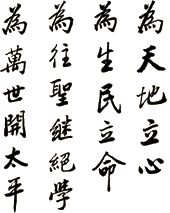 為天地立心
為生民立命
為往聖継絕學
為萬世開太平